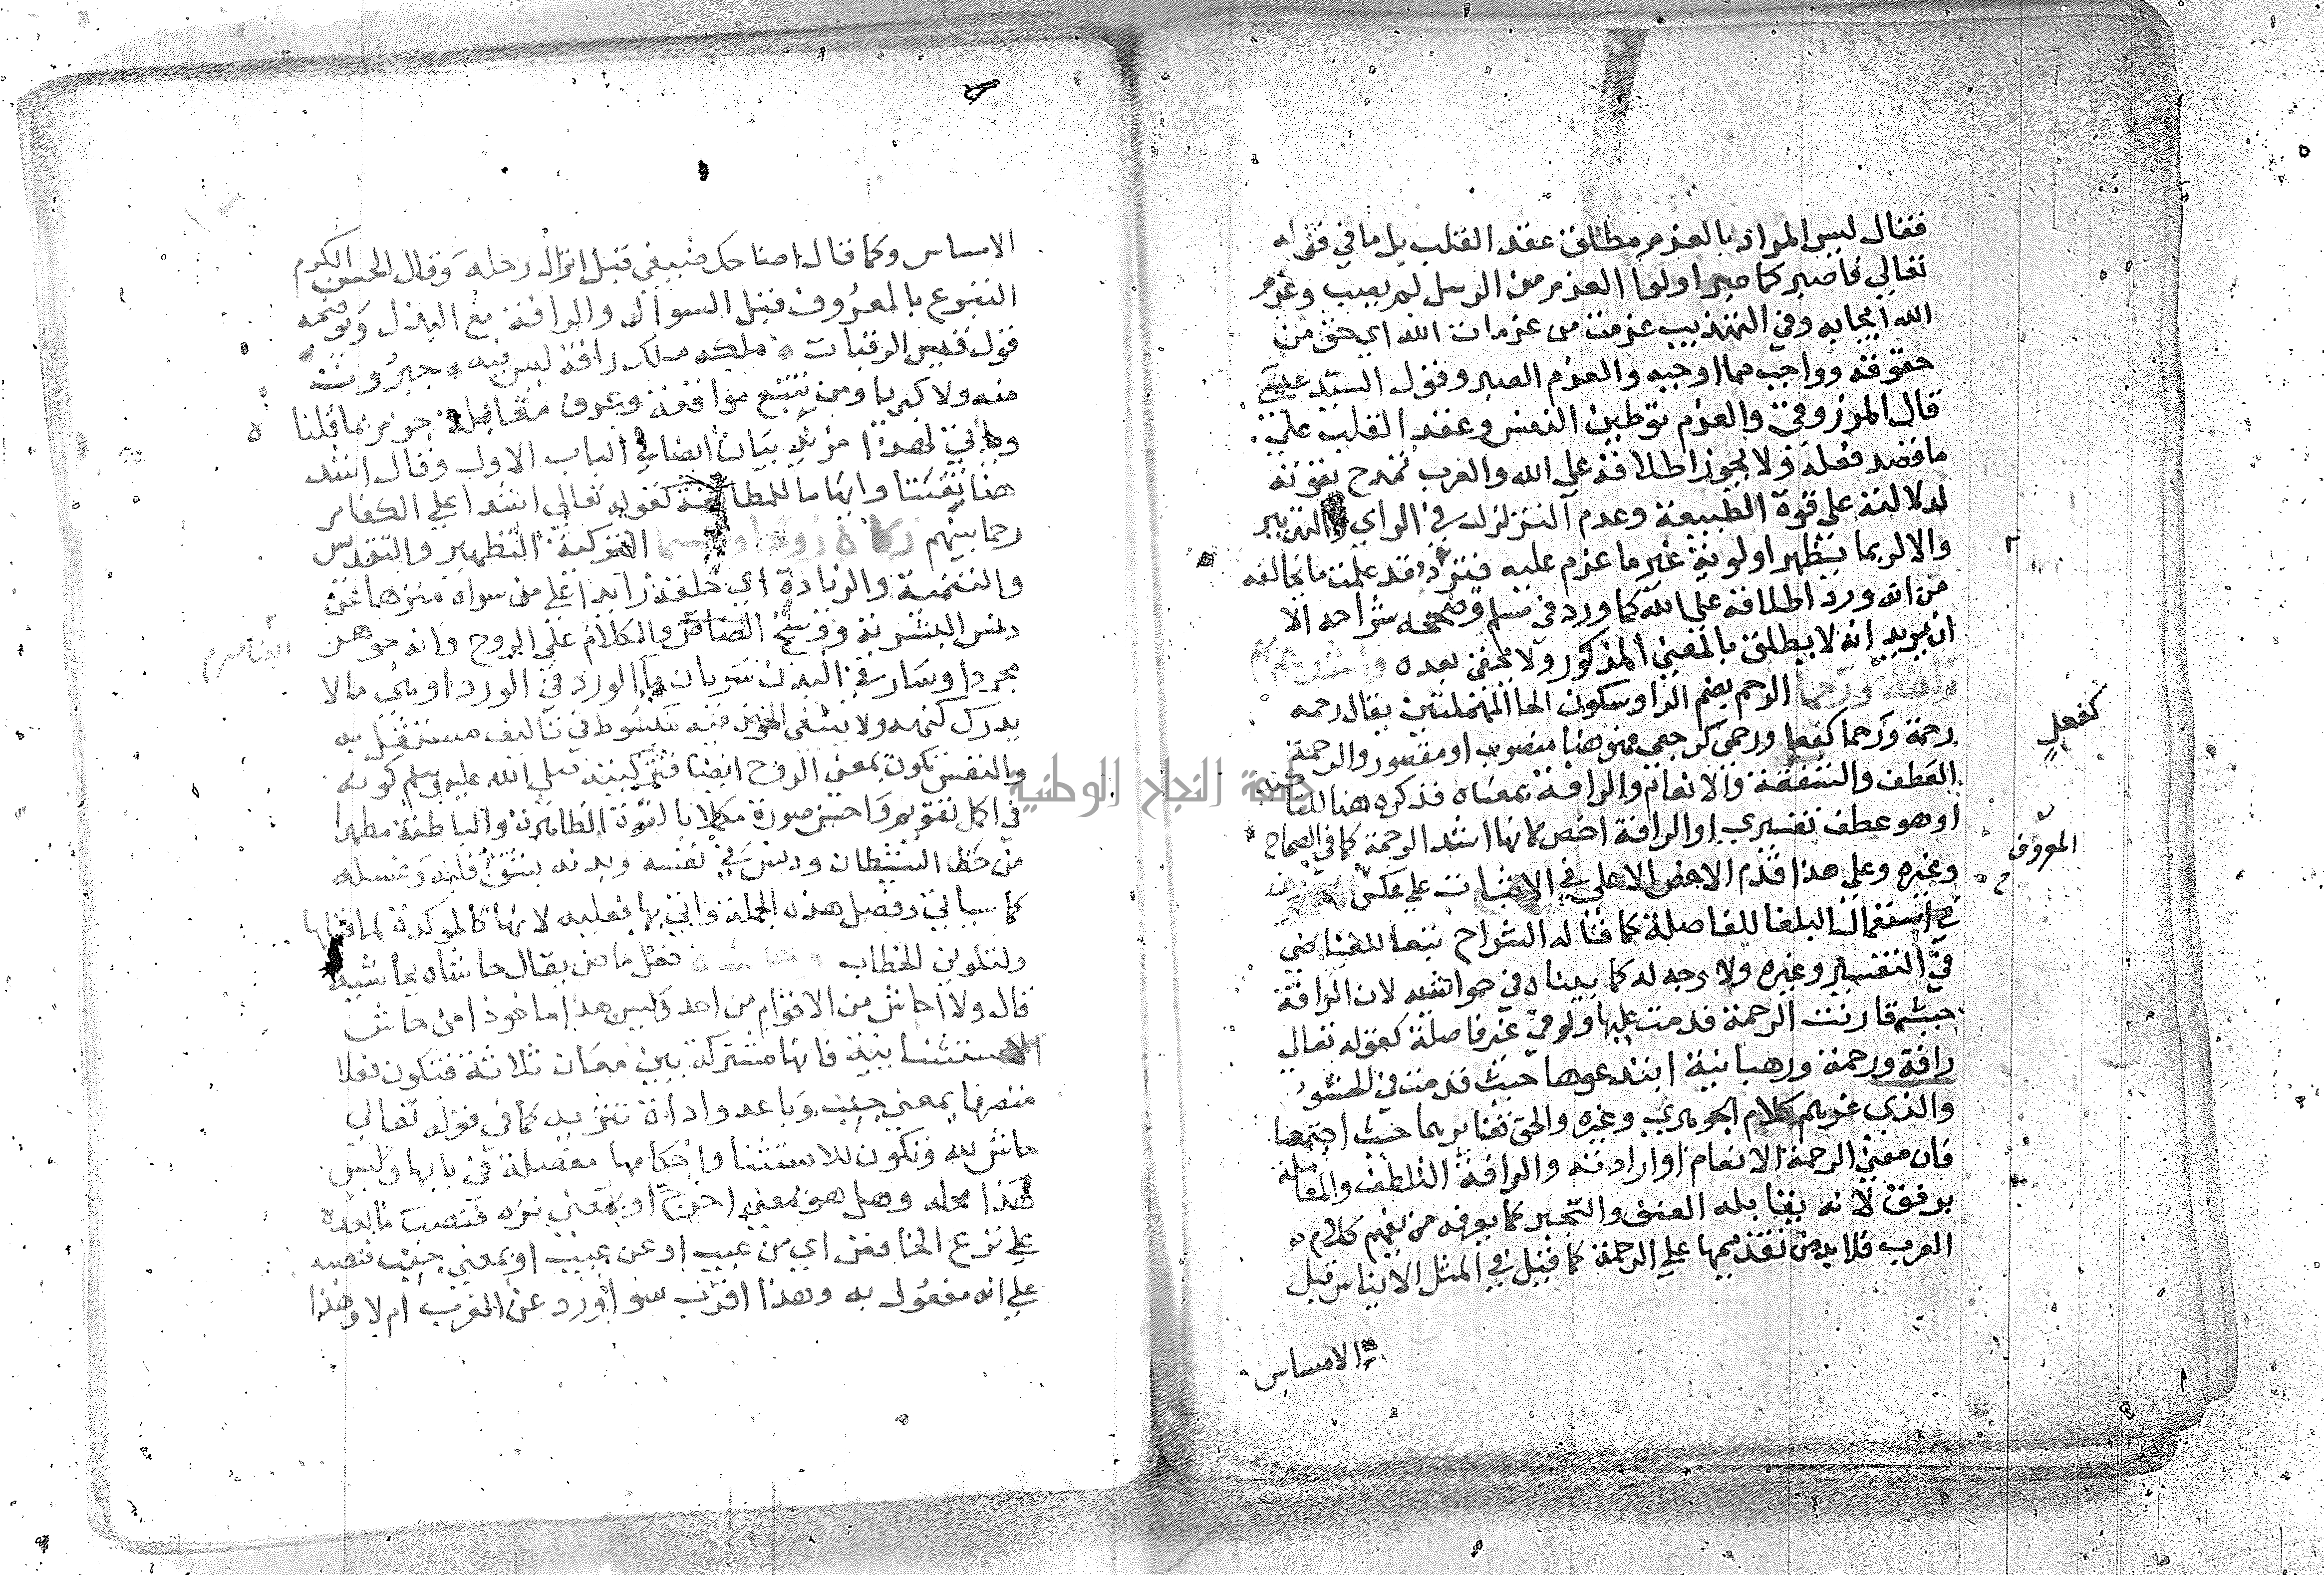 فقال ليس المراد بالعزم مطلق عقد القلب بل ما في قوله
تعالي فاصبر كما صبر اولوا العزم من الرسل لم يصب وعزم
الله ايجابه وفي التهذيب عزمت من عزمات الله اي حق من
حقوقه وواجب مما اوجبه والعزم الصبر وقول السيد عليه
قال المرزوقي والعزم توطين النفس وعقد القلب علي
ما قصد فعله ولا يجوز اطلاقه علي الله والعرب تمدح بقوته
لدلالته علي قوة الطبيعة وعدم التزلزل في الراي والتدبير
والا لربما يظهر اولوية غير ما عزم عليه فتردد وقد علمت ما يخالفه
من انه ورد اطلاقه علي الله كما ورد في مسلم وصححه شراحه الا
ان يريد انه لا يطلق بالمعني المذكور ولا يخفي بعده واشدهم بهم
رافة ورحما الرحم بضم الرا وسكون الحا المهملتين يقال رحمه
رحمة ورحما كقفل ورحمي كرجعي فهو هنا منصوب او مقصور والرحمة
العطف والشفقة والانعام والرافة بمعناه فذكره هنا للتاكيد
او هو عطف تفسيري او الرافة اخص لانها اشد الرحمة كما في الصحاح
وغيره وعلي هذا قدم الاخص الاعلي في الاثبات علي عكس
في استعمال البلغا للفاصلة كما قاله الشراح تبعا للقاضي
في التفسير وغيره ولا وجه له كما بيناه في حواشيه لان الرافة
حيث قارنت الرحمة قدمت عليها ولو في غير فاصلة كقوله تعالي
رافة ورحمة ورهبانية ابتدعوها حيث قدمت في الحشو
والذي غرهم كلام الجوهري وغيره والحق تغايرهما حيث اجتمعا
فان معني الرحمة الانعام او ارادته والرافة التلطف والمعاملة
برفق لانه يقابله العنف والتجبر كما يعرفه من تفهم كلام
العرب فلابد من تقديمها علي الرحمة كما قيل في المثل الايناس قبل
الامساس
كفعل
المعروف
الامساس وكما قال اضاحك ضيفي قبل انزال رحله وقال الحسن الكرم
التبرع بالمعروف قبل السوال والرافة مع البذل وتوضحه
قول قيس الرقيات ملكه ملك رافة ليس فيه جبروت
منه ولا كبريا ومن تتبع مواقعه وعرف مقابله جزم بما قلنا
وياتي لهذا مزيد بيان ايضا في الباب الاول وقال اشد
هنا تفننا وايهاما للمطابقة كقوله تعالي اشدا علي الكفار
رحما بينهم زكاه روحا وجسما التزكية التطهير والتقديس
والتنمية والزيادة اي خلقه زايدا علي من سواه منزها عن
دنس البشرية ووسخ العناصر والكلام علي الروح وانه جوهر
مجرد او سار في البدن سريان ما الورد في الورد او شي مالا
يدرك كنهه ولا ينبغي الخوض فيه مبسوط في تاليف مستقل به
والنفس تكون بمعني الروح ايضا فتزكيته صلي الله عليه وسلم كونه
في اكمل تقويم واحسن صورة مكملا بالقوة الظاهرة والباطنة مطهرا
من حظ الشيطان ودنس في نفسه وبدنه بشق قلبه وغسله
كما سياتي وفصل هذه الجملة واتي بها فعلية لانها كالموكدة لما قبلها
ولتلوين الخطاب وحاشاه فعل ماض يقال حاشاه يحاشيه
قال ولا احاشي من الاقوام من احد وليس هذا ماخوذا من حاش
الاستثنائية فانها مشتركة بين معان ثلاثة فتكون فعلا
متصرفا بمعني جنب وباعد واداة تنزيه كما في قوله تعالي
حاش لله وتكون للاستثنا واحكامها مفصلة في بابها وليس
هذا محله وهل هو بمعني اخرج او بمعني نزه فنصب ما بعده
علي نزع الخافض اي من عيب او عن عيب او بمعني جنب فنصبه
علي انه مفعول به وهذا اقرب سوا ورد عن العرب ام لا وهذا
جامعة النجاح الوطنية